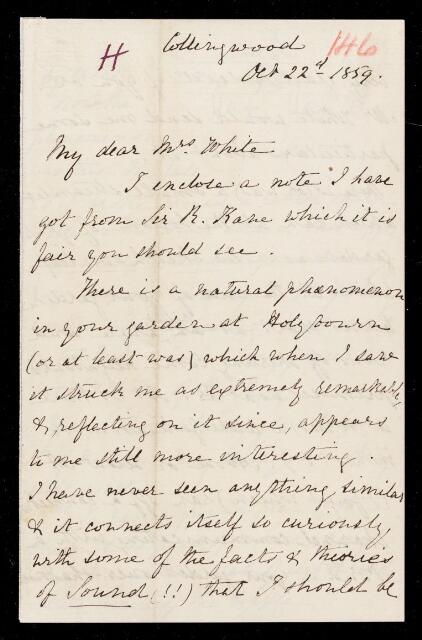 H
Collingwood
146
Oct 22d 1859.
My dear Mrs White
I enclose a note I have
got from Sir R. Kane which it is
fair you should see.
There is a natural phœnomenon
in your garden at Holybourn
(or at least was) which when I saw
it struck me as extremely remarkable,
& reflecting on it since, appears
to me still more interesting.
I have never seen anything similar
& it connects itself so curiously
with some of the facts & theories
of Sound (!!) that I should be